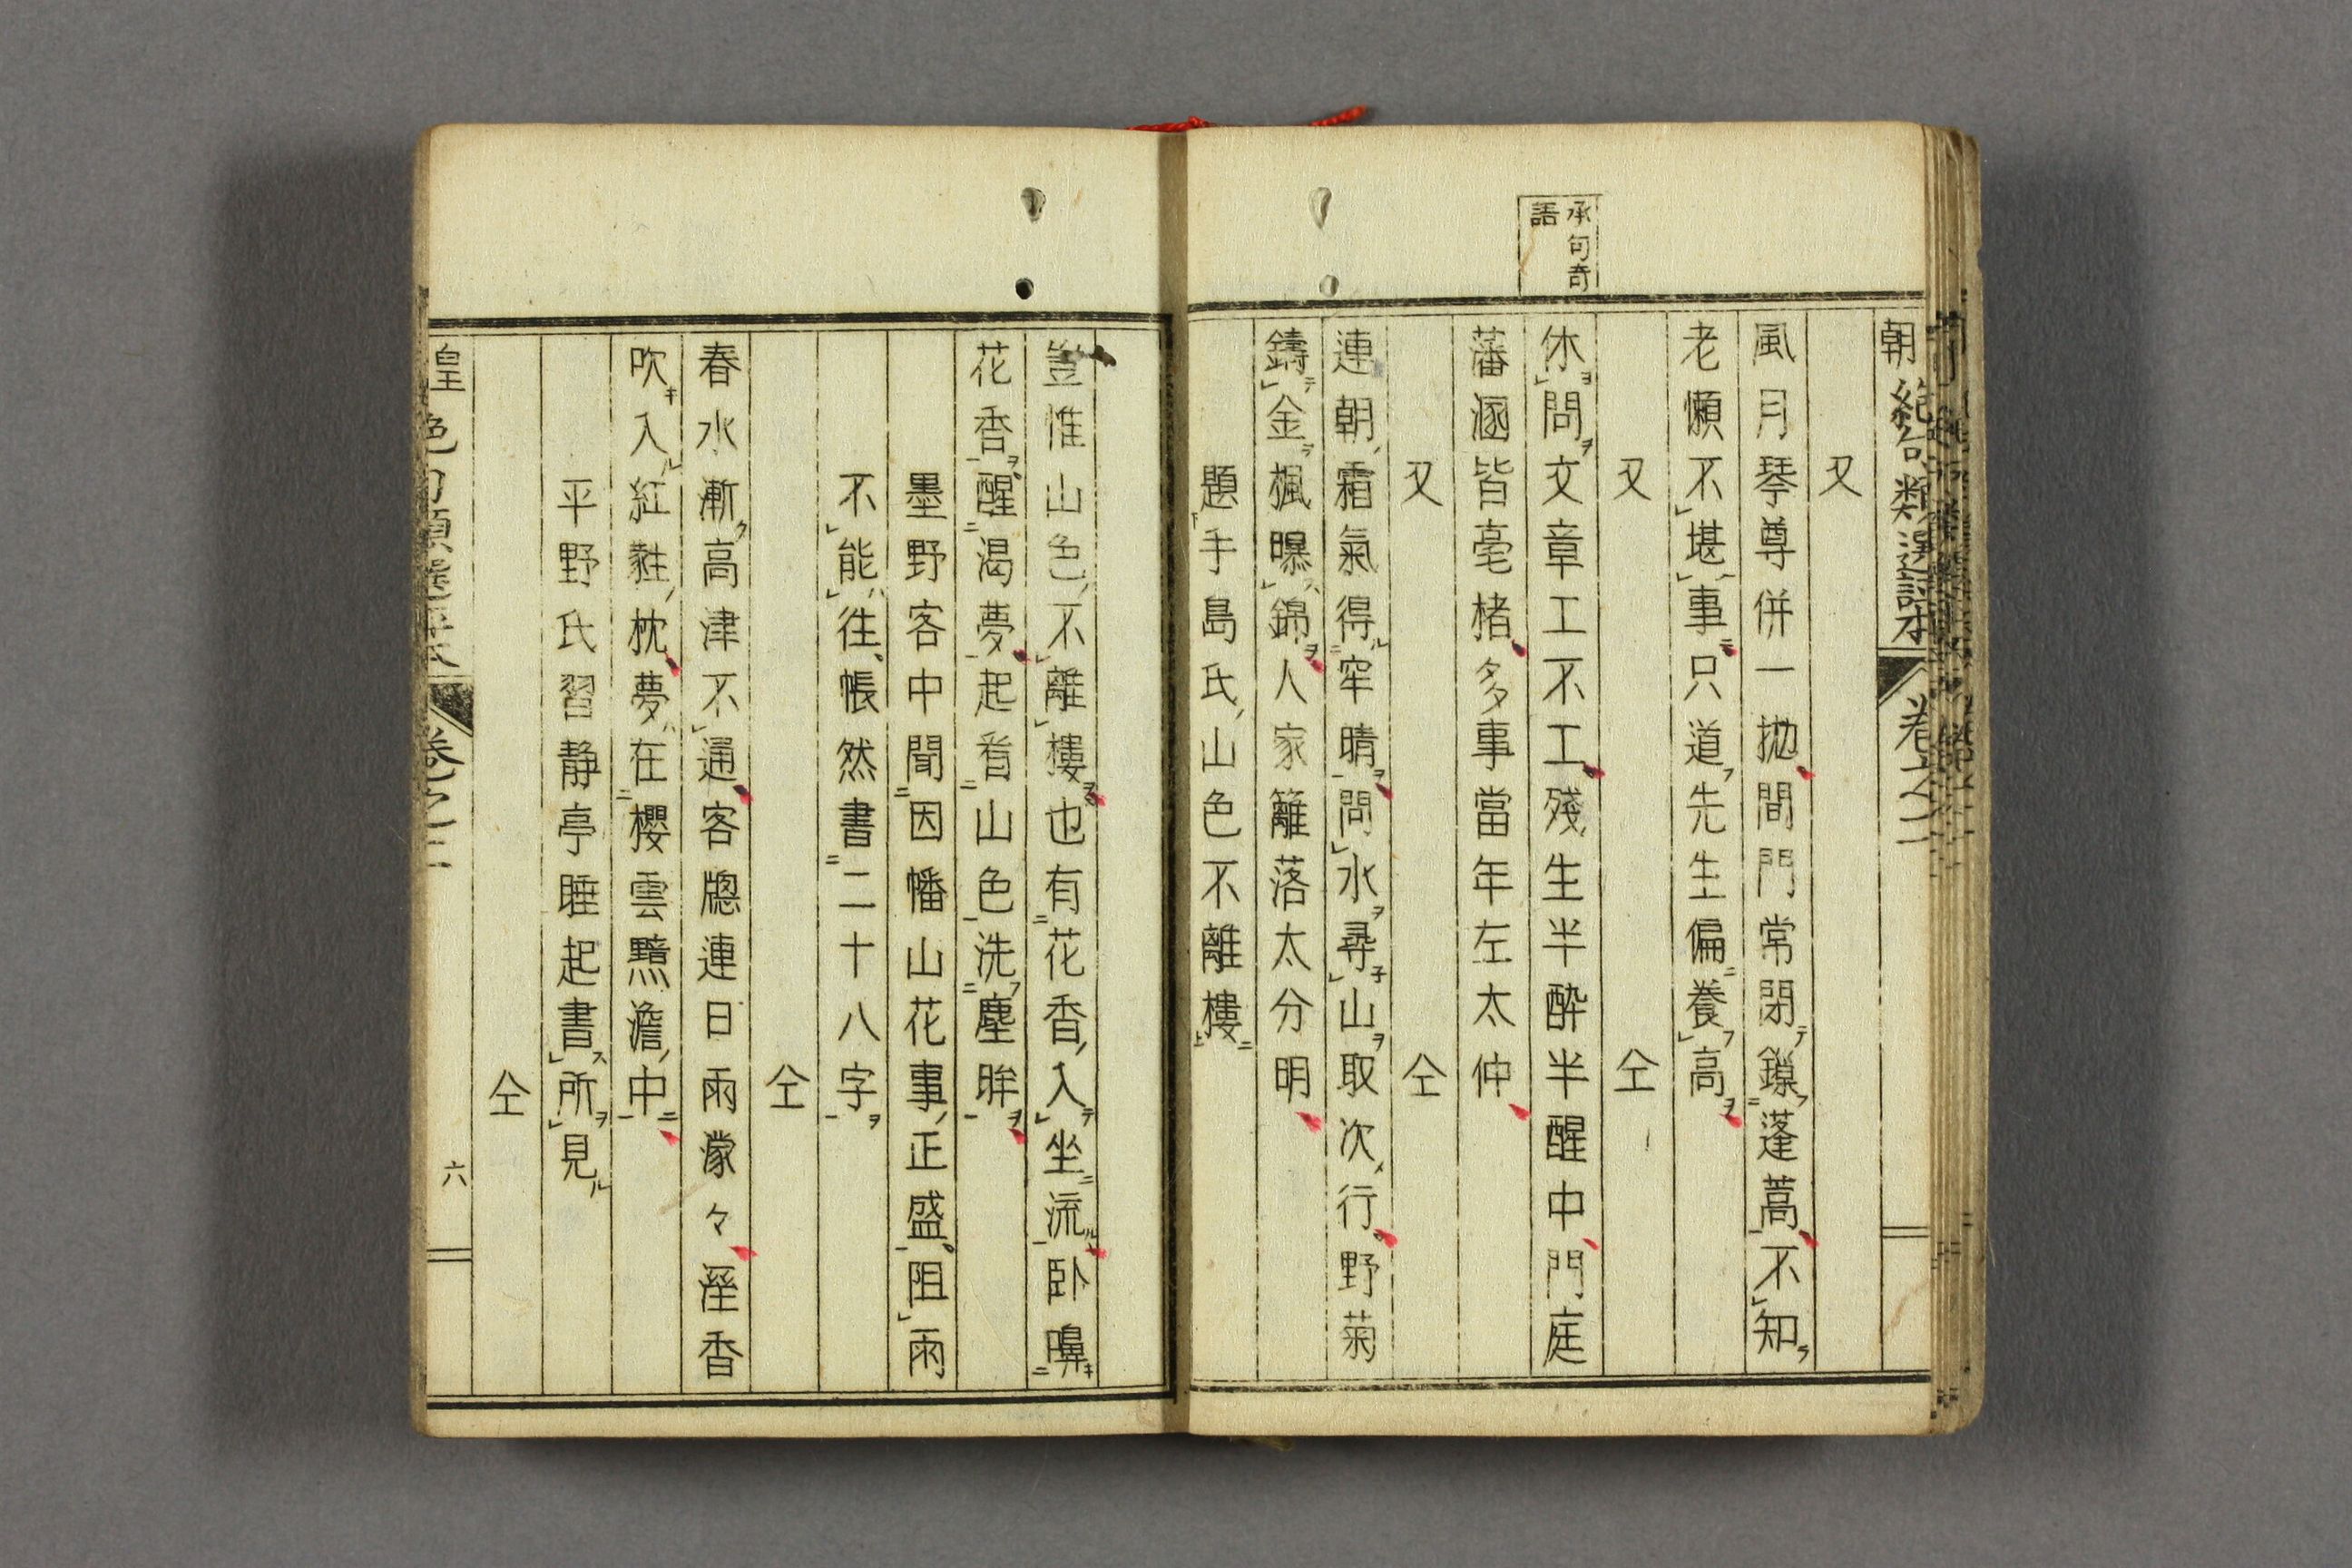 承句奇
語
朝絶句類選評本
卷之二
又
風月琴尊併一拋間門常閉鎖蓬蒿不知
老懶不堪事只道先生偏養高
又 仝
休問文章工不工殘生半酔半醒中門庭
藩溷皆毫楮多事當年左太仲
又 仝
連朝霜氣得牢晴問水尋山取次行野菊
鑄金楓曝錦人家籬落太分明
題手島氏山色不離樓
豈惟山色不離樓也有花香入坐流臥嗅
花香醒渴夢起看山色洗塵眸
墨野客中聞因幡山花事正盛阻雨
不能往帳然書二十八字
仝
春水漸高津不通客牕連日雨濛々溼香
吹入紅韃枕夢在櫻雲黯澹中
平野氏習静亭睡起書所見
仝
卷之二
六